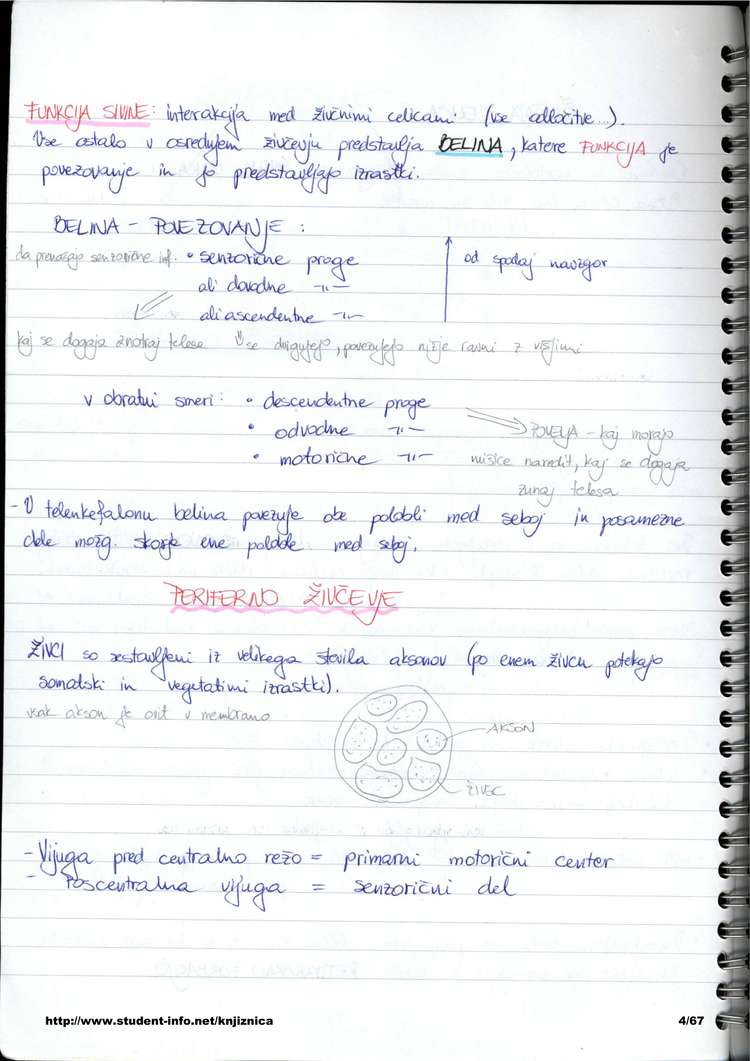 FUNKCIJA SIVINE: interakcija med živčnimi celicami (vse odločitve...).
Vse ostalo v osrednjem živčevju predstavlja BELINA, katere FUNKCIJA je
povezovanje in jo predstavljajo izrastki.
BELINA - POVEZOVANJE :
da prenašajo senzorične inf. • senzorične proge
od spodaj navzgor
ali dovodne -॥-
ali ascendentne -॥-
kaj se dogaja znotraj telesa Vse dvigujejo, povezujejo nižje ravni z višjimi
v obratni smeri: • descendentne proge
• odvodne -॥-
• motorične -॥-
POVELJA - kaj morajo
mišice naredit, kaj se dogaja
zunaj telesa
- V telenkefalonu belina povezuje obe polobli med seboj in posamezne
dele možg. skorje ene poloble med seboj.
PERIFERNO ŽIVČEVJE
ŽIVCI so sestavljeni iz velikega števila aksonov (po enem živcu potekajo
somatski in vegetativni izrastki).
vsak akson je ovit v membrano
AKSON
ŽIVEC
- Vijuga pred centralno režo = primarni motorični center
- Poscentralna vijuga = senzorični del
http://www.student-info.net/knjiznica
4/67